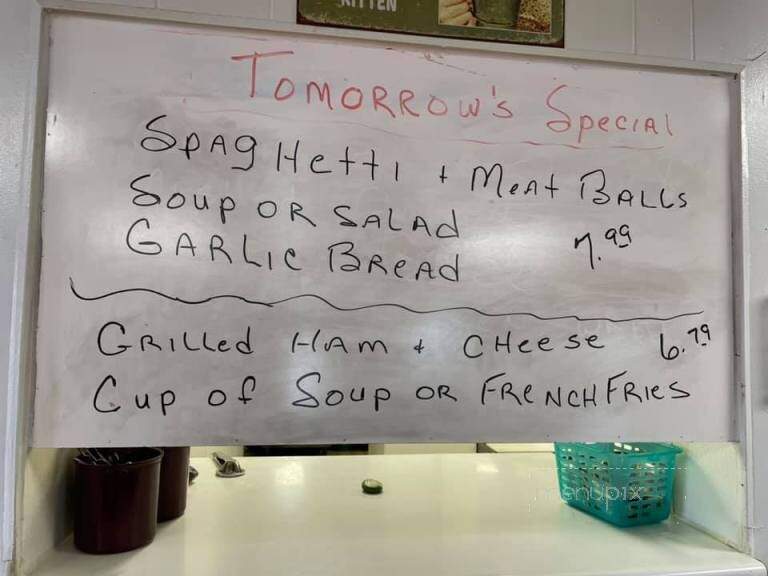 KITTEN
TOMORROW'S SPECIAL
SPAGHETTI + MEAT BALLS
SOUP OR SALAD
GARLIC BREAD 7.99
GRILLED HAM + CHEESE 6.79
CUP OF SOUP OR FRENCH FRIES
menupix